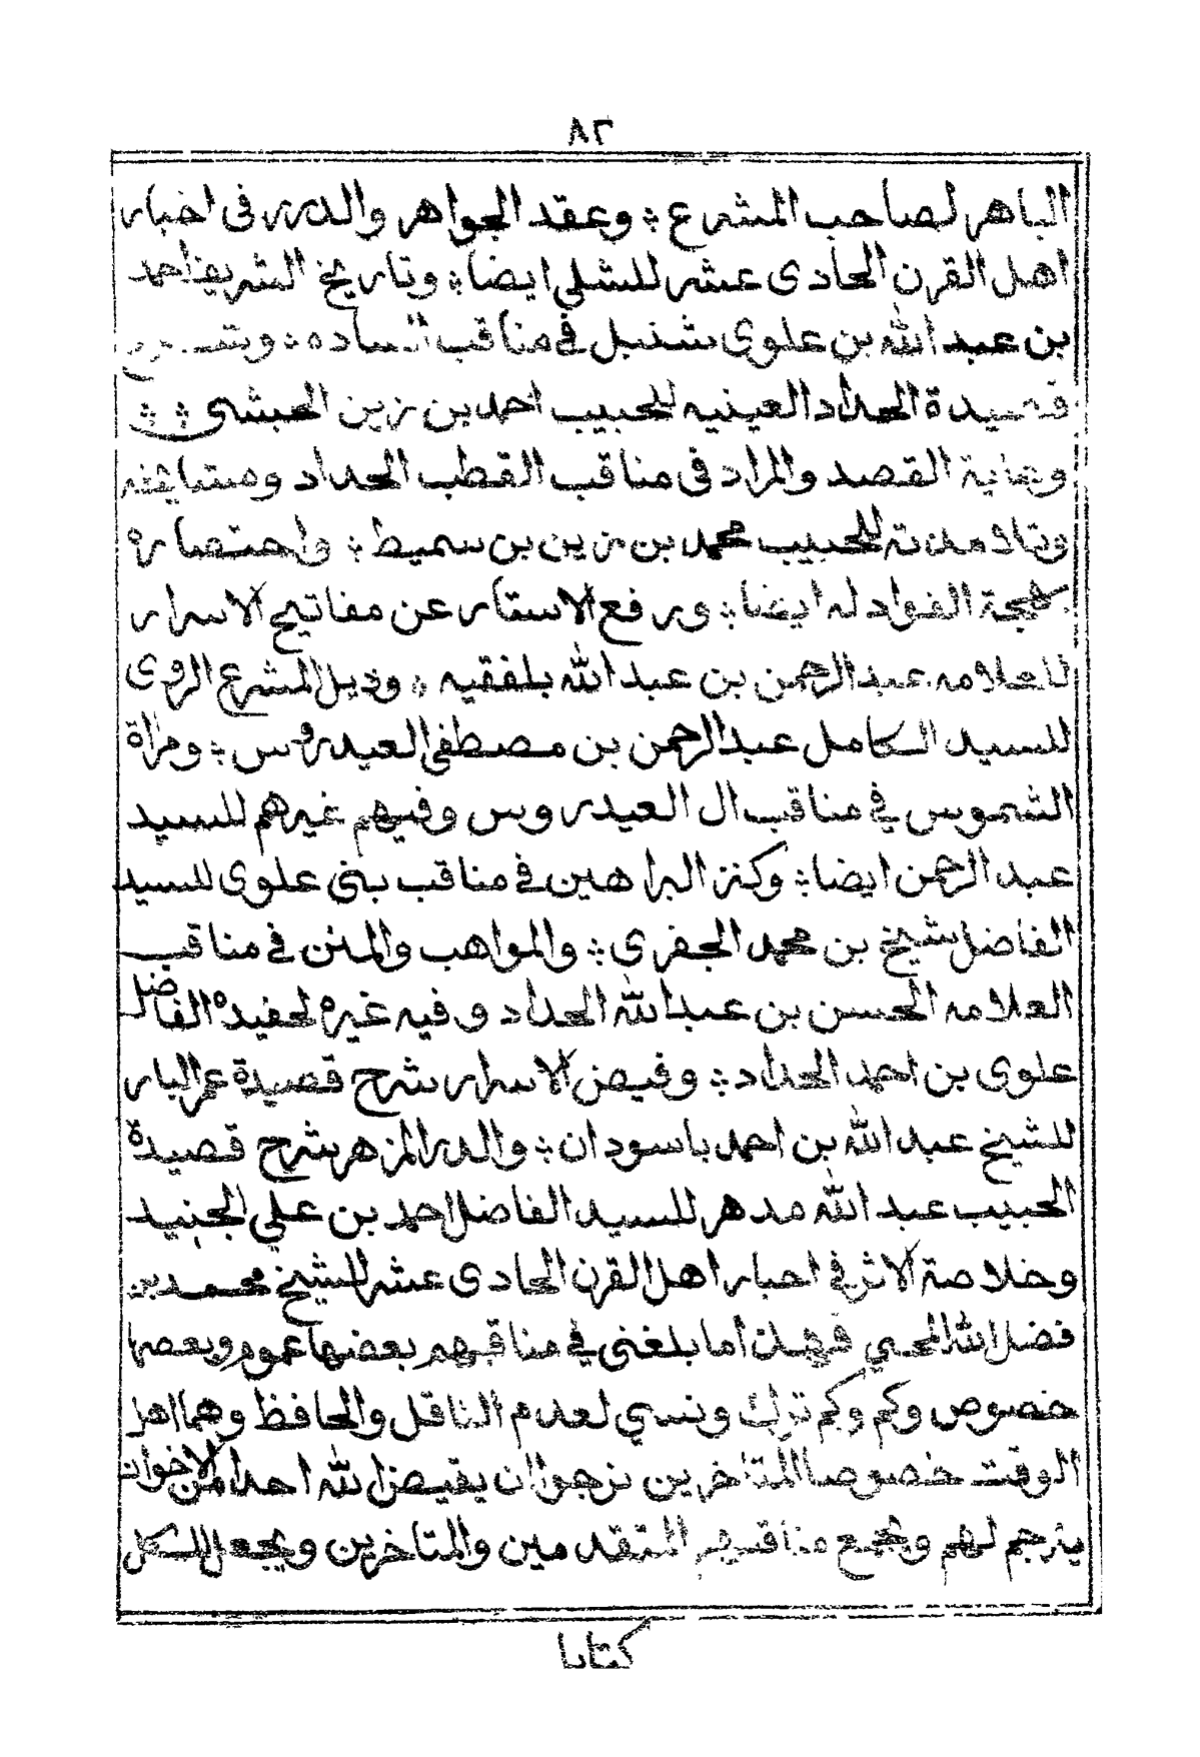 ٨٢
الباهر لصاحب المشرع ؞ وعقد الجواهر والدرر فى اخبار
اهل القرن الحادى عشر للشلي ايضا ؞ وتاريخ الشريف احمد
بن عبد الله بن علوى شنبل في مناقب الساده ؞
قصيدة الحداد العينيه للحبيب احمد بن زين الحبشى ؞ ؞
وغاية القصد والمراد فى مناقب القطب الحداد ومشايخه
وتلامدته للحبيب محمد بن زين بن سميط ؞ واختصاره
بهجة الفواد له ايضا ؞ ورفع الاستار عن مفاتيح الاسرار
للعلامه عبد الرحمن بن عبد الله بلفقيه ؞ وذيل المشرع الروى
للسيد الكامل عبد الرحمن بن مصطفى العيدروس ؞ ومراة
الشموس في مناقب ال العيدروس وفيهم غيرهم للسيد
عبد الرحمن ايضا ؞ وكنز البراهين في مناقب بنى علوى للسيد
الفاضل شيخ بن محمد الجفرى ؞ والمواهب والمنن في مناقب
العلامه الحسن بن عبد الله الحداد وفيه غيره لحفيده الفاضل
علوى بن احمد الحداد ؞ وفيض الاسرار شرح قصيدة عمر البار
للشيخ عبد الله بن احمد باسودان ؞ والدر المزهر شرح قصيدة
الحبيب عبد الله مدهر للسيد الفاضل احمد بن علي الجنيد
وخلاصة الاثر في اخبار اهل القرن الحادى عشر للشيخ محمد بن
فضل الله المحبي فهذا ما بلغنى في مناقبهم بعضها عموم وبعضها
خصوص وكم وكم ترك ونسي لعدم الناقل والحافظ وهما اهل
الوقت خصوصا المتاخرين نرجوا ان يقيض الله احدا من الاخوان
يترجم لهم ويجمع مناقبهم المتقدمين والمتاخرين ويجعل للكل
كتابا